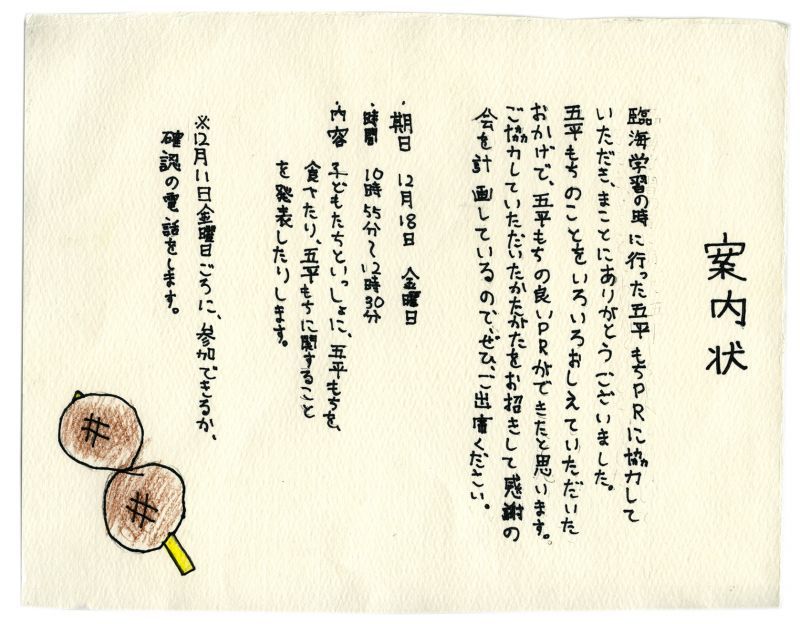 案内状
臨海学習の時に行った五平もちPRに協力して
いただき、まことにありがとうございました。
五平もちのことをいろいろおしえていただいた
おかげで、五平もちの良いPRができたと思います。
ご協力していただいたかたがたをお招きして感謝の
会を計画しているので、ぜひ、ご出席ください。
・期日 12月18日 金曜日
・時間 10時55分〜12時30分
・内容 子どもたちといっしょに、五平もちを、
食べたり、五平もちに関すること
を発表したりします。
※12月11日金曜日ごろに、参加できるか、
確認の電話をします。